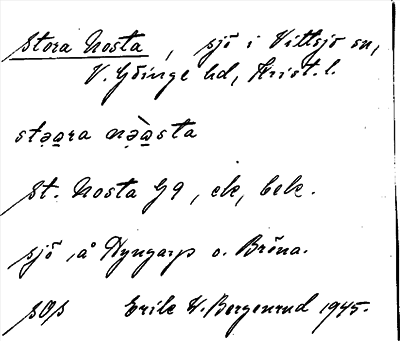 Stora Nosta, sjö i Vittsjö sn,
V. Göinge hd, Krist. l.
stəa̲ra nə̀a̲sta
St. Nosta G9, ek, bek.
sjö å Nyngarp o. Bröna.
Erik W. Bergenrud 1945.